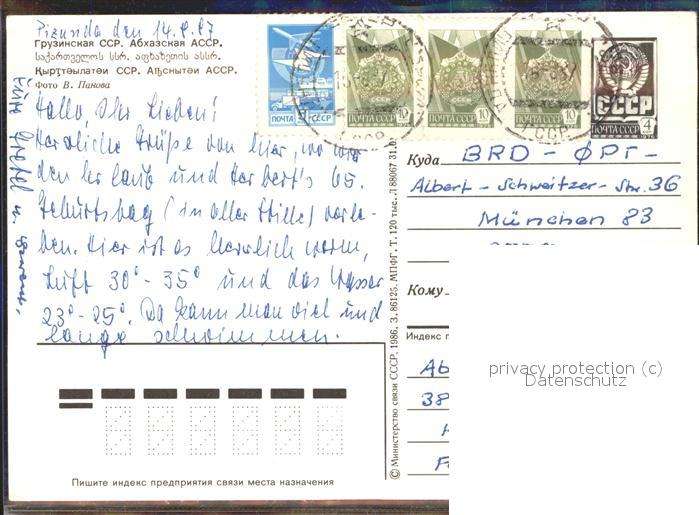 Pizunda den 14.9.87
Грузинская ССР. Абхазская АССР.
საქართველოს სსრ. აფხაზეთის ასსრ.
Қырҭтәылатәи ССР. Аҧснытәи АССР.
Фото В. Панова
Hallo, Ihr Lieben!
Herzliche Grüße von hier, wo wir
den Urlaub und Herbert's 65.
Geburtstag (in aller Stille) verle-
ben. Hier ist es herrlich warm,
Luft 30° - 35° und das Wasser
23° - 25°. Da kann man viel und
lange schwimmen.
ПОЧТА СССР
ПОЧТА СССР 10
ПОЧТА СССР 10
ПОЧТА СССР 10
СССР
ПОЧТА СССР 4
Куда BRD - ФРГ -
Albert - Schweitzer - Str. 36
München 83
Кому
Индекс п
Ab
38
© Министерство связи СССР. 1986. З. 86125. МПФГ. Т. 120 тыс. Л 88067 31.0
Пишите индекс предприятия связи места назначения
privacy protection (c)
Datenschutz